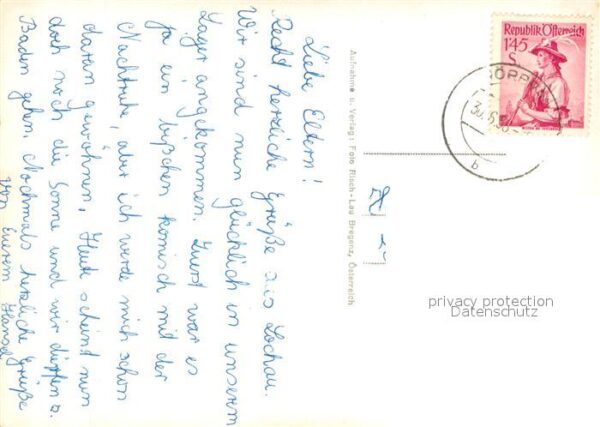 Liebe Eltern!
Recht herzliche Grüße aus Lochau.
Wir sind nun glücklich in unserem
Lager angekommen. Zuerst war es
ja ein bißchen komisch mit der
Nachtruhe, aber ich werde mich schon
daran gewöhnen. Heute scheint nun
doch noch die Sonne und wir dürfen z.
Baden gehen. Nochmals herzliche Grüße
von Eurem Hansel
Aufnahme u. Verlag: Foto Risch-Lau Bregenz, Österreich
Republik Österreich
1'45
S
b
privacy protection
Datenschutz